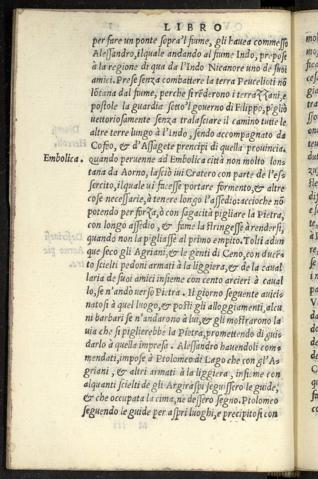 LIBRO
per fare un ponte sopra'l fiume, gli hauea commesso
Alessandro, ilquale andando al fiume Indo, prepose
à la regione di qua da l'Indo Nicanore uno de suoi
amici. Prese senza combattere la terra Peucelioti nō
lōtana dal fiume, perche si rēderono i terrazzani, e
postole la guardia sotto'l governo di Filippo, pigliò
uettoriosamente senza tralasciare il camino tutte le
altre terre lungo à l'Indo, sendo accompagnato da
Cofio, & d'Assagete prencipi di quella prouincia.
Embolica.
quando peruenne ad Embolica città non molto lon-
tana da Aorno, lasciò iui Cratero con parte de l'es
sercito, ilquale ui facesse portare formento, & altre
cose necessarie, à tenere longo l'assedio: accioche nō
potendo per forza, ò con sagacità pigliare la Pietra,
con longo assedio, & fame la stringesse à rendersi,
quando non la pigliasse al primo empito. Tolti adun
que seco gli Agriani, & le genti di Ceno, con ducen
to scielti pedoni armati à la liggiera, & de la caual
laria de suoi amici insieme con cento arcieri à caual
lo, se n'andò uerso Pietra. Il giorno seguente auici-
natosi à quel luogo, & posti gli alloggiamenti, alcu
ni barbari se n'andarono à lui, & gli mostrarono la
uia che si piglierebbe la Pietra, promettendo di gui
darlo à quella impresa. Alessandro hauendoli com-
mendati, impose à Ptolomeo di Lago che con gl'A-
griani, & altri armati à la liggiera, insieme con
alquanti scielti de gli Argiraspi seguissero le guide,
& che occupata la cima, ne dessero segno. Ptolomeo
seguendo le guide per aspri luoghi, e precipitosi con